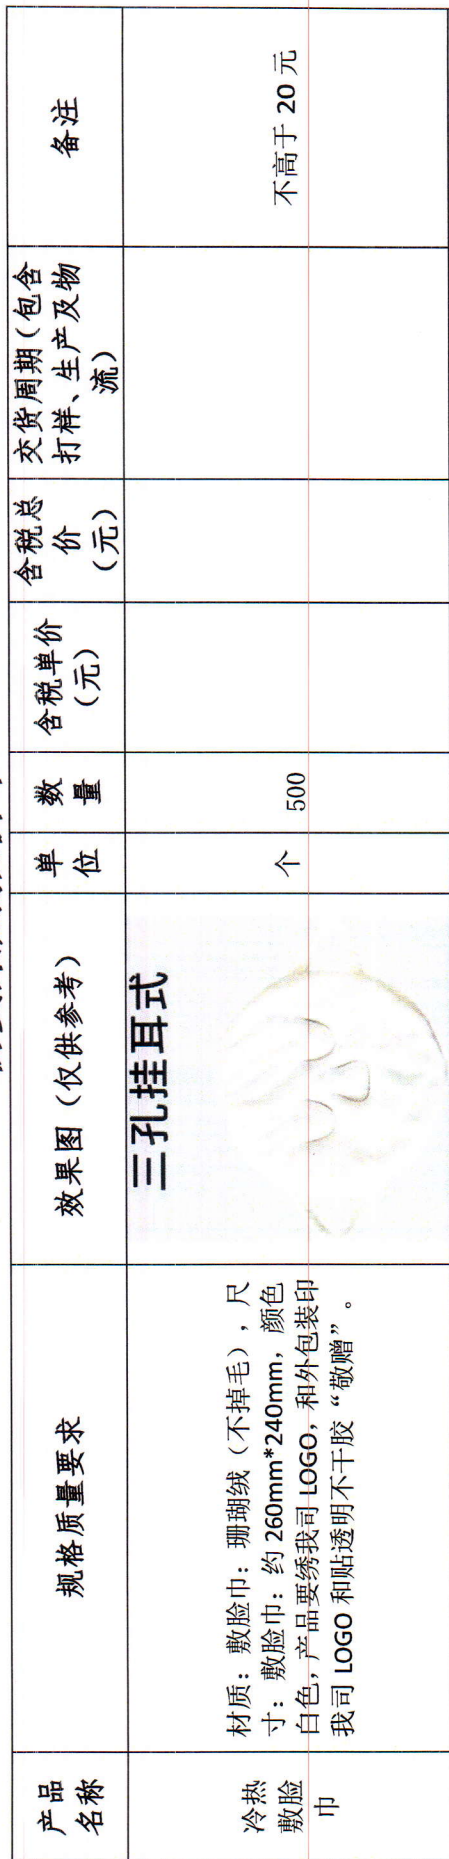 产品
名称
规格质量要求
效果图（仅供参考）
单
位
数
量
含税单价
（元）
含税总
价
（元）
交货周期（包含
打样、生产及物
流）
备注
冷热
敷脸
巾
材质：敷脸巾：珊瑚绒（不掉毛），尺
寸：敷脸巾：约 260mm*240mm，颜色
白色，产品要绣我司 LOGO，和外包装印
我司 LOGO 和贴透明不干胶“敬赠”。
三孔挂耳式
个
500
不高于 20 元